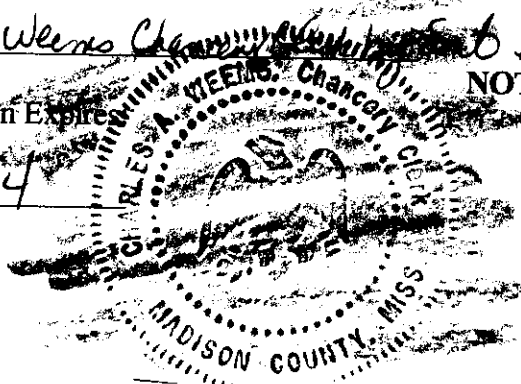 Weems Chancery
NOT
n Expires
4
CHARLES A. WEEMS, Chancery Clerk
MADISON COUNTY, MISS